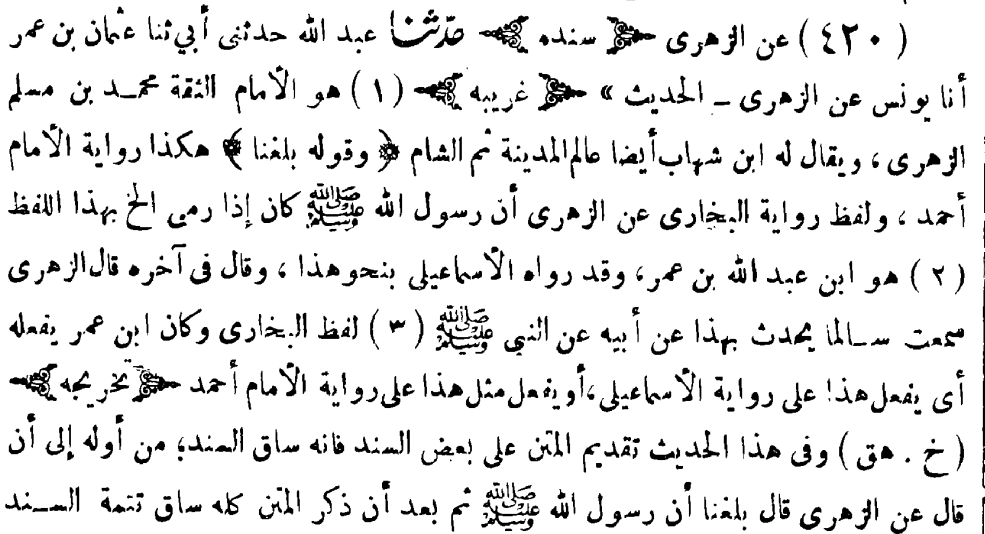 ( ٤٢٠ ) عن الزهرى ﴿ سنده ﴾ حدّثنا عبد الله حدثنى أبى ثنا عثمان بن عمر
أنا يونس عن الزهرى ـ الحديث » ﴿ غريبه ﴾ ( ١ ) هو الأمام الثقة محمد بن مسلم
الزهرى ، ويقال له ابن شهاب أيضا عالم المدينة ثم الشام ﴿ وقوله بلغنا ﴾ هكذا رواية الأمام
أحمد ، ولفظ رواية البخارى عن الزهرى أن رسول الله ﷺ كان إذا رمى الخ بهذا اللفظ
( ٢ ) هو ابن عبد الله بن عمر ، وقد رواه الأسماعيلى بنحو هذا ، وقال فى آخره قال الزهرى
سمعت سالما يحدث بهذا عن أبيه عن النبى ﷺ ( ٣ ) لفظ البخارى وكان ابن عمر يفعله
أى يفعل هذا على رواية الأسماعيلى ، أو يفعل مثل هذا على رواية الأمام أحمد ﴿ تخريجه ﴾
( خ . هق ) وفى هذا الحديث تقديم المتن على بعض السند فانه ساق السند من أوله إلى أن
قال عن الزهرى قال بلغنا أن رسول الله ﷺ ثم بعد أن ذكر المتن كله ساق تتمة السند